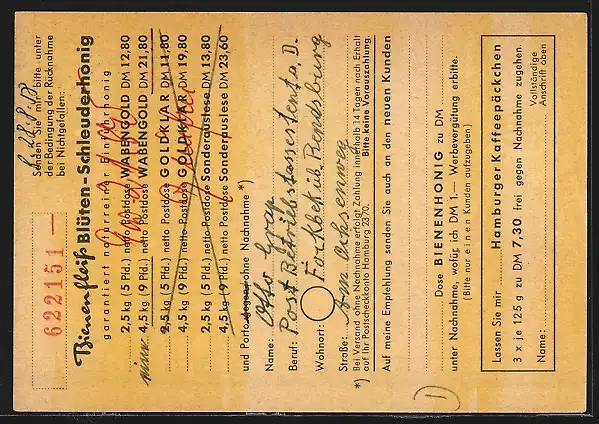 Senden Sie mir bitte unter
der Bedingung der Rücknahme
bei Nichtgefallen:
622151 —
Bienenfleiß Blüten-Schleuderhonig
garantiert naturreiner Einfuhrhonig
2,5 kg (5 Pfd.) netto Postdose WABENGOLD DM 12,80
4,5 kg (9 Pfd.) netto Postdose WABENGOLD DM 21,80
2,5 kg (5 Pfd.) netto Postdose GOLDKLAR DM 11,80
4,5 kg (9 Pfd.) netto Postdose GOLDKLAR DM 19,80
2,5 kg (5 Pfd.) netto Postdose Sonderauslese DM 13,80
4,5 kg (9 Pfd.) netto Postdose Sonderauslese DM 23,60
und Porto gegen/ohne Nachnahme *)
Name: Otto Grap
Beruf: Post Betriebsassistent a. D.
Wohnort: Fockbek üb. Rendsburg
Straße: Am Ochsenweg
*) Bei Versand ohne Nachnahme erfolgt Zahlung innerhalb 14 Tagen nach Erhalt
auf Ihr Postscheckkonto Hamburg 2370. Bitte keine Vorauszahlung.
Auf meine Empfehlung senden Sie auch an den neuen Kunden
Dose BIENENHONIG zu DM
unter Nachnahme, wofür ich DM 1.— Werbevergütung erbitte.
(Bitte nur einen Kunden aufgeben)
Lassen Sie mir Hamburger Kaffeepäckchen
3 x je 125 g zu DM 7,30 frei gegen Nachnahme zugehen.
Name:
Vollständige
Anschrift oben
1)